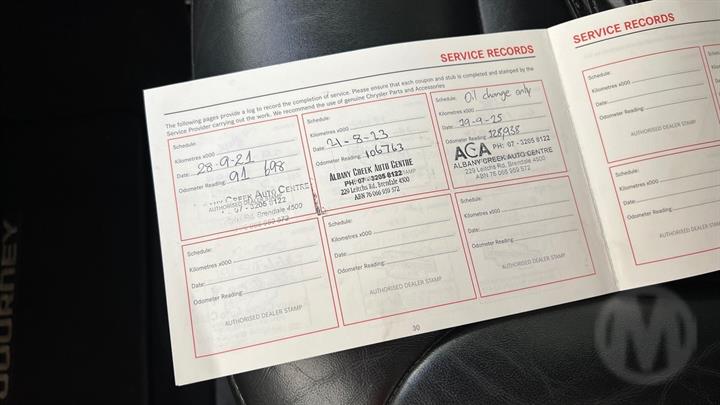 SERVICE RECORDS
The following pages provide a log to record the completion of service. Please ensure that each coupon and stub is completed and stamped by the
Service Provider carrying out the work. We recommend the use of genuine Chrysler Parts and Accessories
Schedule:
Kilometres x000
Date: 28-9-21
Odometer Reading: 91 698
CREEK AUTO CENTRE
AUTHORISED DEALER STAMP
07 - 3205 8122
Rd, Brendale 4500
066 959 572
Schedule:
Kilometres x000
Date: 21-8-23
Odometer Reading: 106763
ALBANY CREEK AUTO CENTRE
PH: 07 - 3205 8122
229 Leitchs Rd, Brendale 4500
ABN 76 066 959 572
Schedule: Oil change only
Kilometres x000
Date: 29-9-25
Odometer Reading: 128,938
ACA PH: 07 - 3205 8122
ALBANY CREEK AUTO CENTRE
229 Leitchs Rd, Brendale 4500
ABN 76 066 959 572
Schedule:
Kilometres x000
Date:
Odometer Reading:
AUTHORISED DEALER STAMP
Schedule:
Kilometres x000
Date:
Odometer Reading:
AUTHORISED DEALER STAMP
Schedule:
Kilometres x000
Date:
Odometer Reading:
AUTHORISED DEALER STAMP
30
SERVICE RECORDS
Schedule:
Kilometres x000
Date:
Odometer Reading:
AUTHORISED DEALER STAMP
Schedule:
Kilometres x000
Date:
Odometer Reading:
AUTHORISED DEALER STAMP
JOURNEY
M